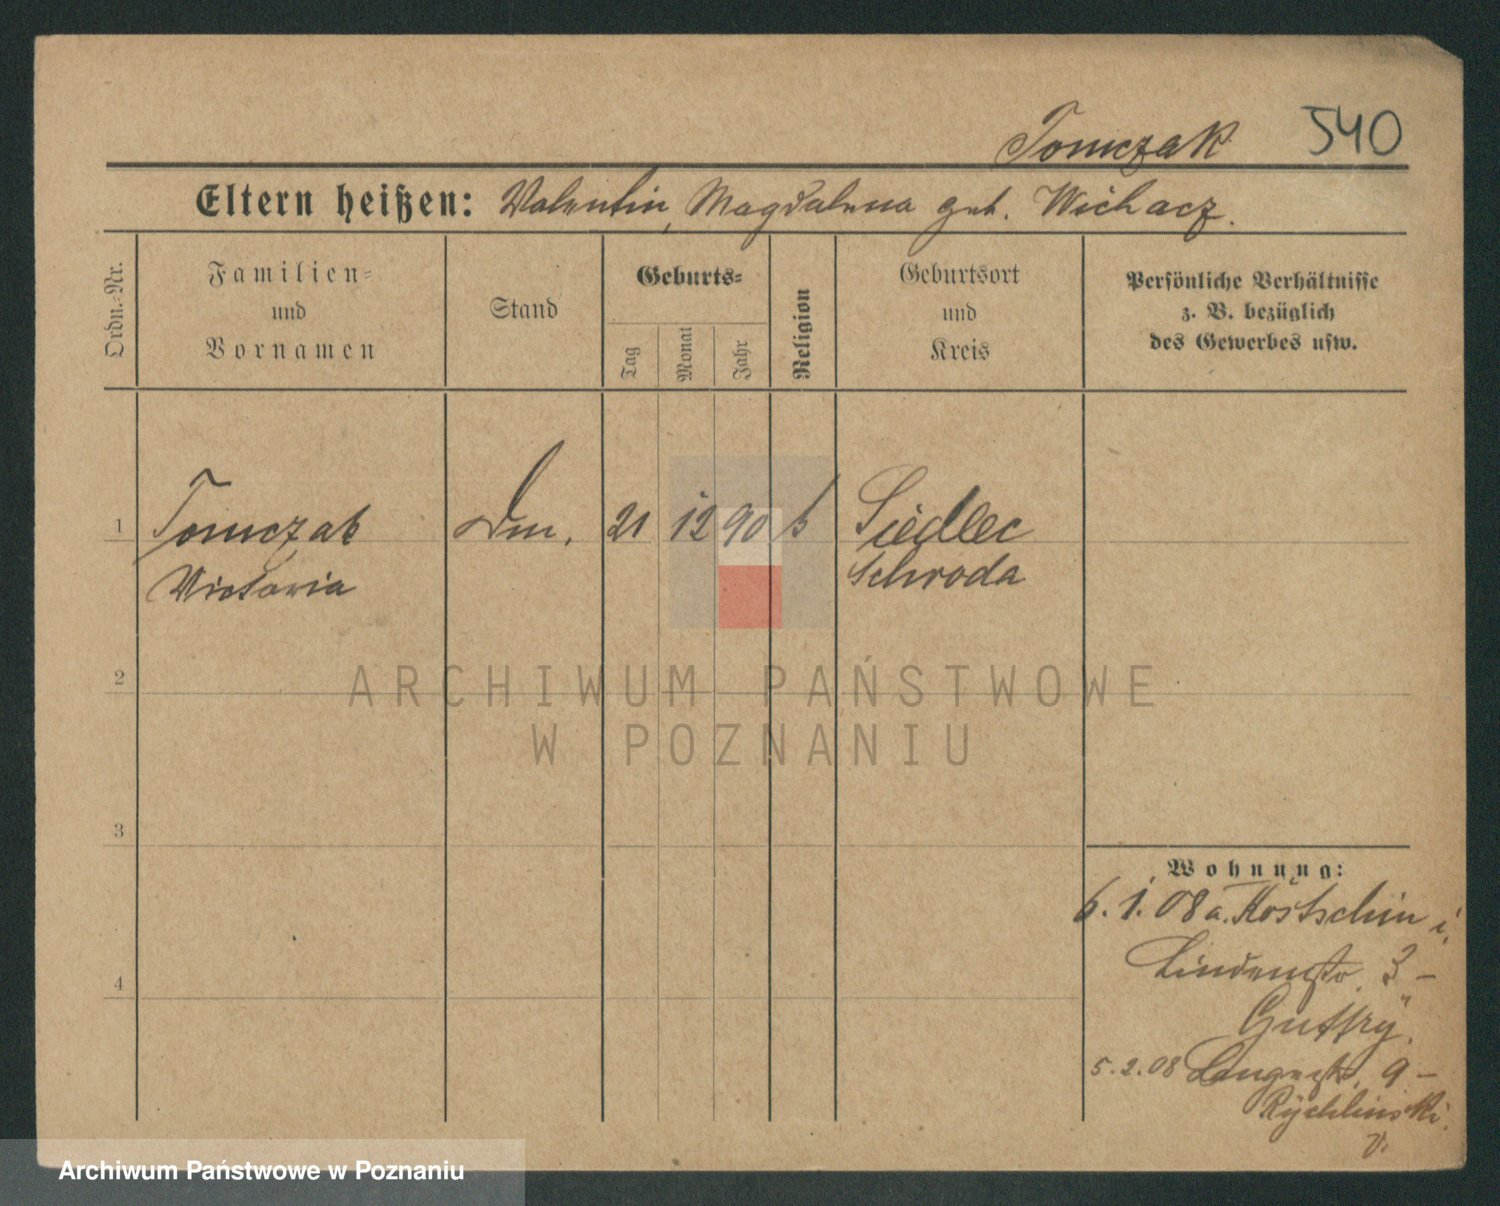 Tomczak 540
Eltern heißen: Valentin, Magdalena geb. Wichacz.
Ordn.-Nr.
Familien-
und
Vornamen
Stand
Geburts-
Tag
Monat
Jahr
Religion
Geburtsort
und
Kreis
Persönliche Verhältnisse
z. B. bezüglich
des Gewerbes usw.
1 Tomczak 21 12 90 Siedlec
Victoria Schroda
2
3
4
Wohnung:
6.1.08 a. Kostschin i.
Lindenstr. 3 –
5.2.08 Langestr. 9 –
Rychlinski.
ARCHIWUM PAŃSTWOWE
W POZNANIU
Archiwum Państwowe w Poznaniu